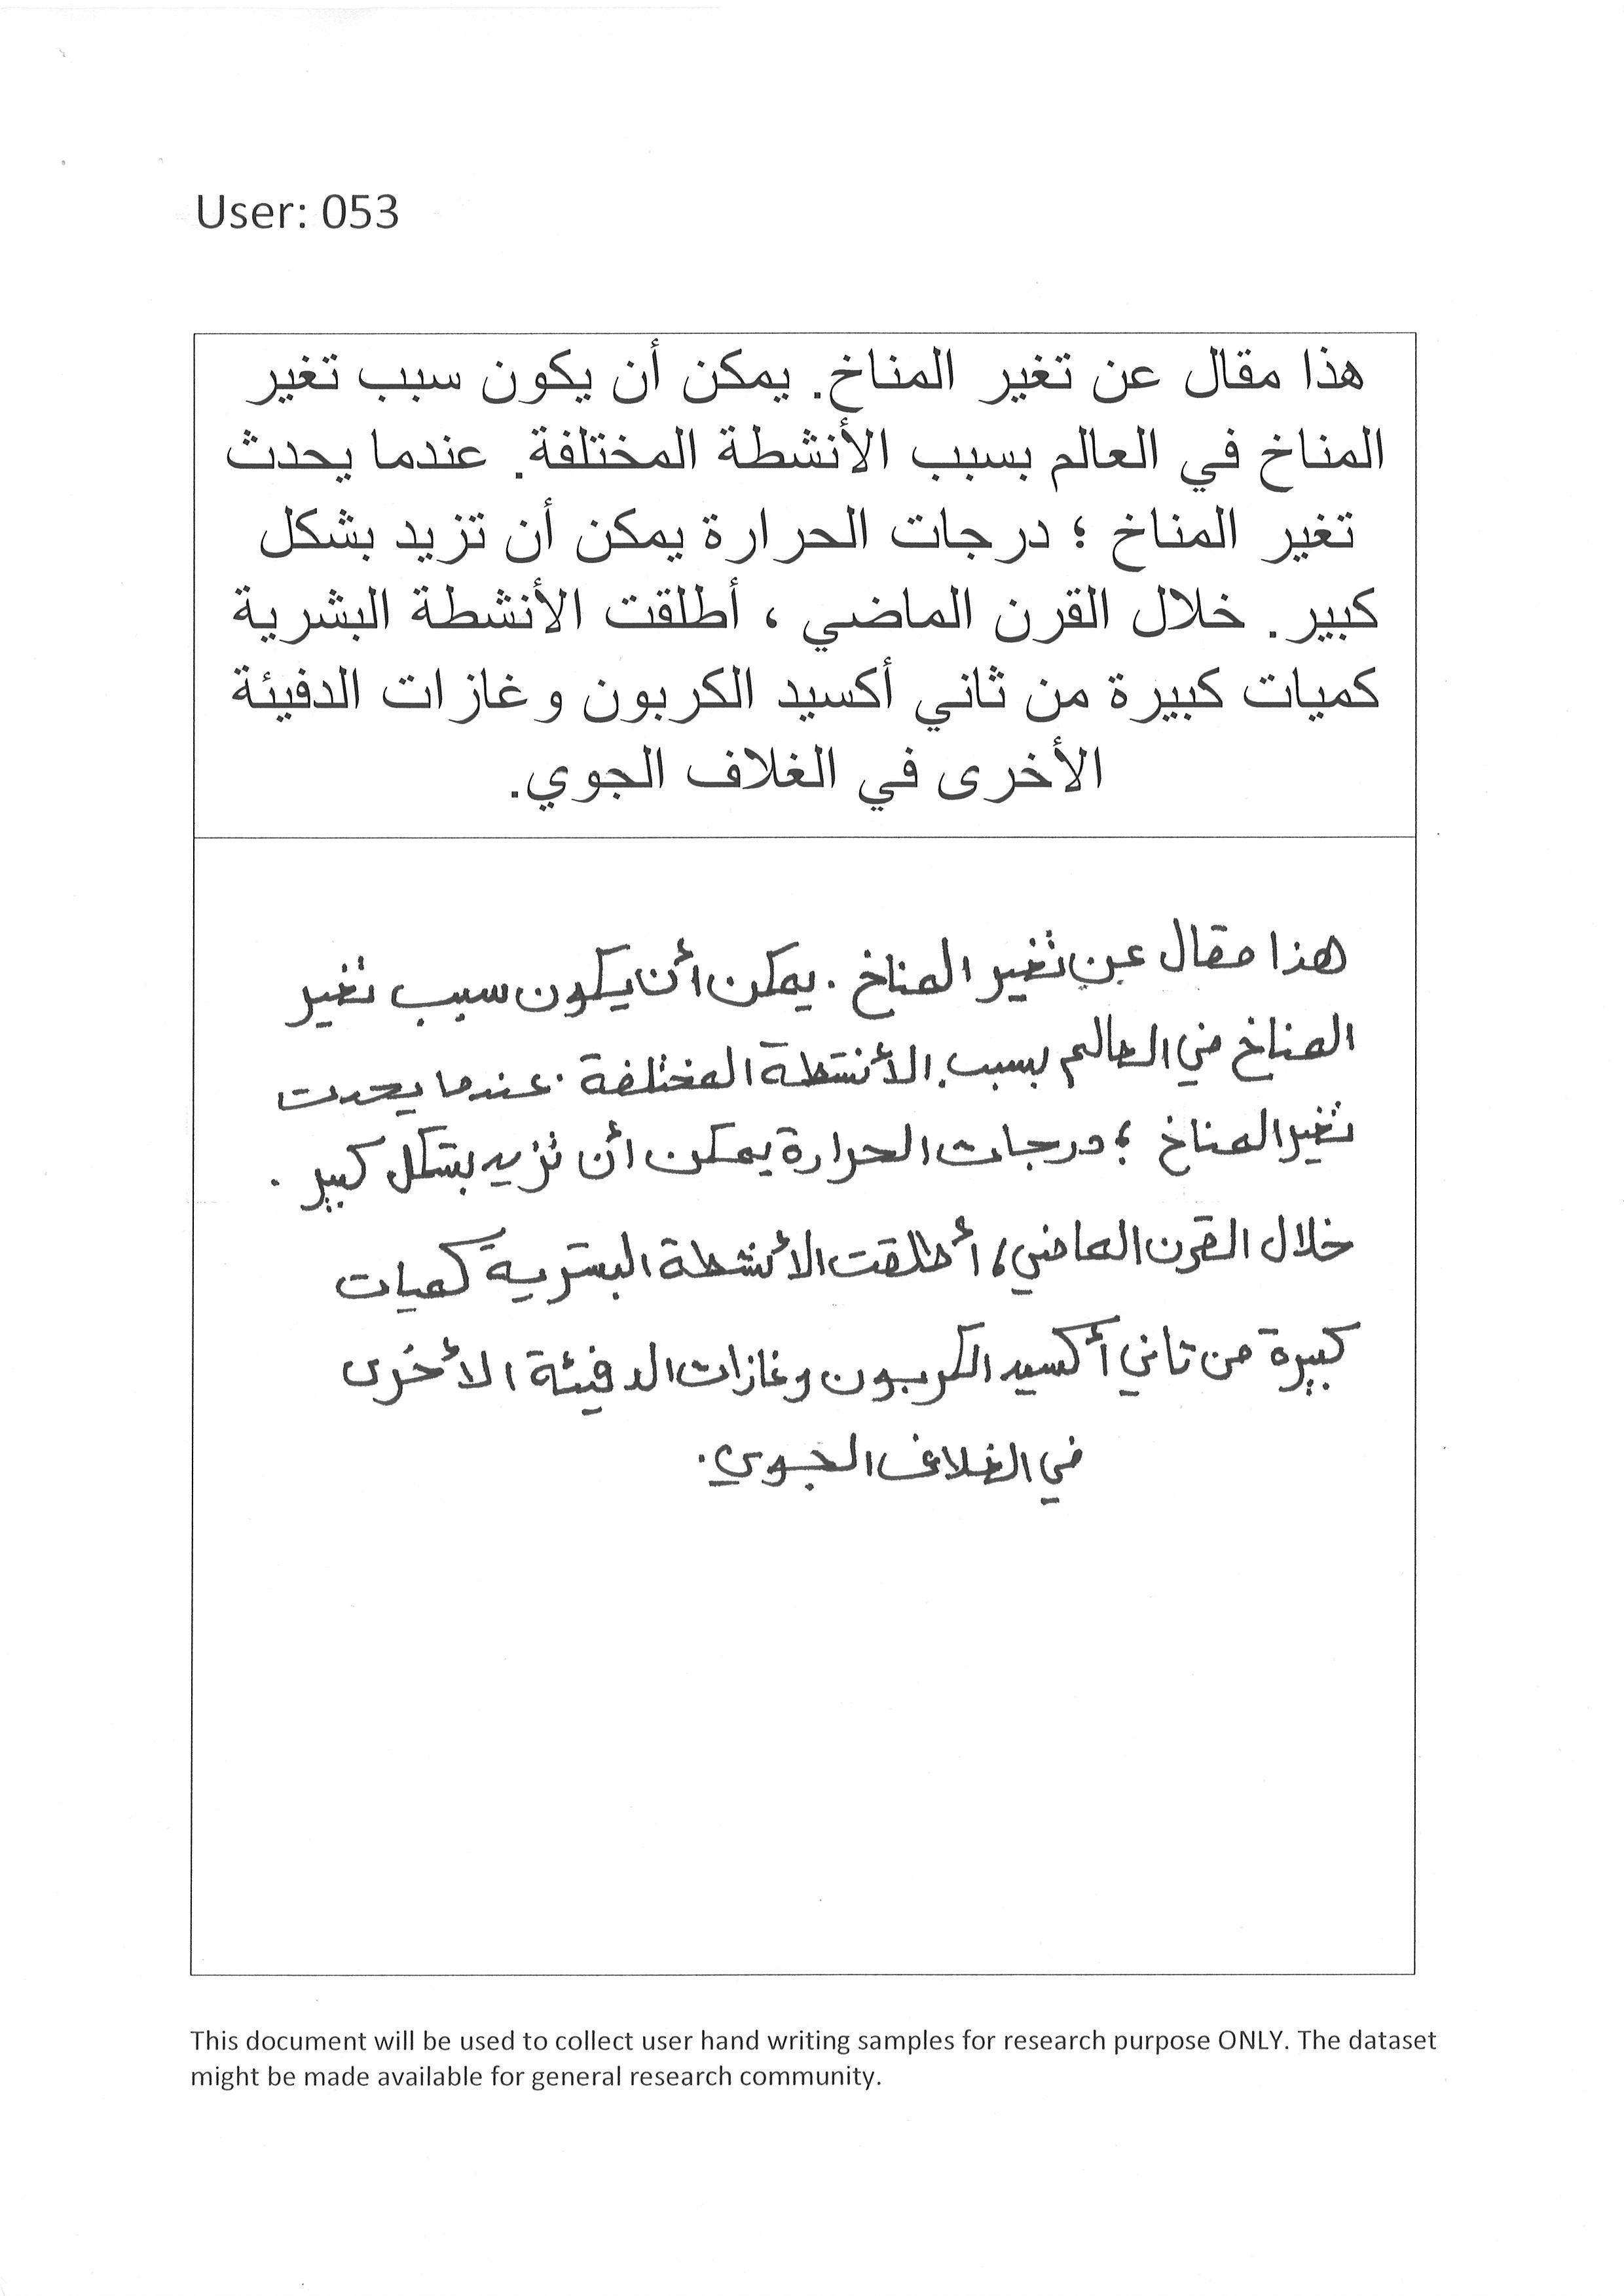 User: 053
هذا مقال عن تغير المناخ. يمكن أن يكون سبب تغير
المناخ في العالم بسبب الأنشطة المختلفة. عندما يحدث
تغير المناخ ؛ درجات الحرارة يمكن أن تزيد بشكل
كبير. خلال القرن الماضي ، أطلقت الأنشطة البشرية
كميات كبيرة من ثاني أكسيد الكربون وغازات الدفيئة
الأخرى في الغلاف الجوي.
هذا مقال عن تغير المناخ. يمكن أن يكون سبب تغير
المناخ في العالم بسبب الأنشطة المختلفة. عندما يحدث
تغير المناخ ؛ درجات الحرارة يمكن أن تزيد بشكل كبير.
خلال القرن الماضي، أطلقت الأنشطة البشرية كميات
كبيرة من ثاني أكسيد الكربون وغازات الدفيئة الأخرى
في الغلاف الجوي.
This document will be used to collect user hand writing samples for research purpose ONLY. The dataset
might be made available for general research community.